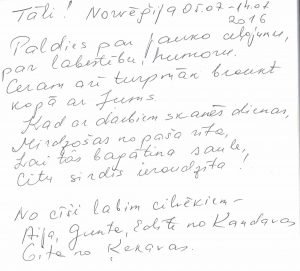 Tāli! Norvēģija 05.07-14.07
2016
Paldies par jauko ceļojumu,
par labestību, humoru.
Ceram arī turpmāk braukt
kopā ar Jums.
Kad ar darbiem skanēs dienas,
Mirdzošas no paša rīta,
Lai tās bagātina saule,
Citu sirdīs ieraudzīta!
No cīši labim cilvēkiem -
Aija, Gunta, Edīte no Kandavas
Gita no Ķekavas.